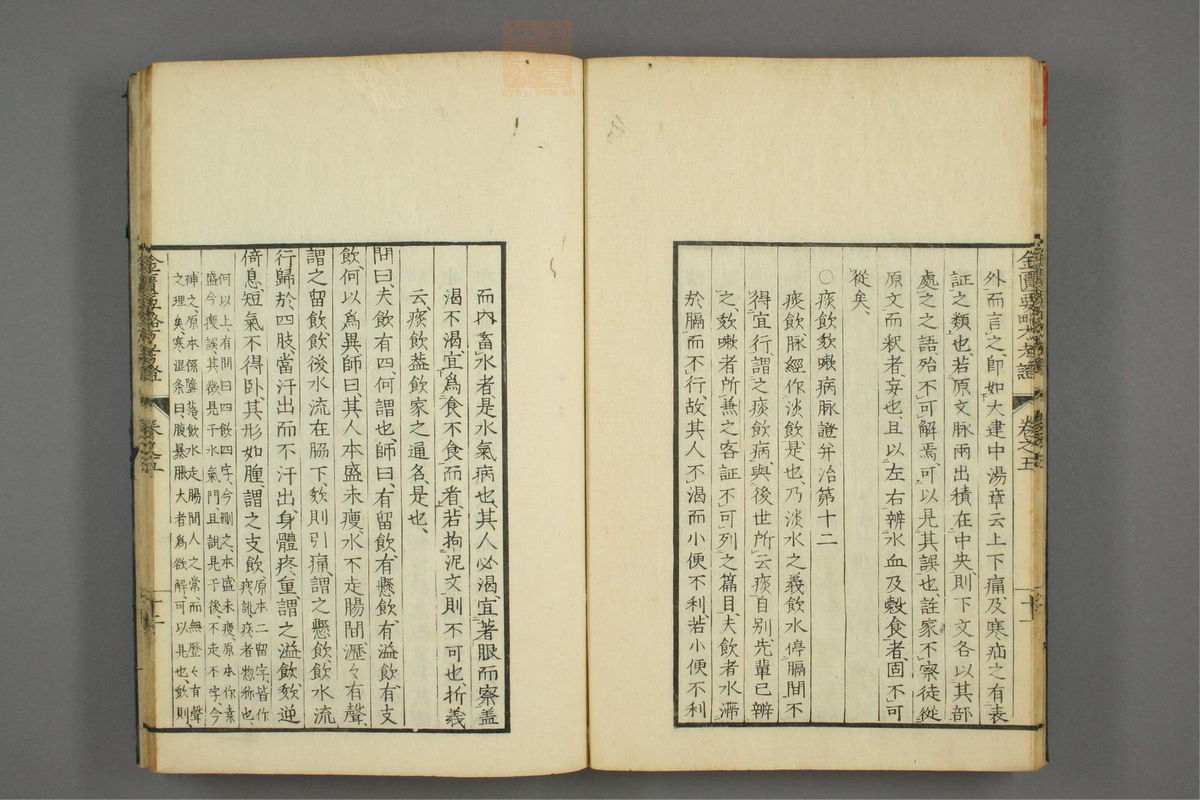 外而言之、即如大建中湯章云上下痛及寒疝之有表
証之類也、若原文脉兩出積在中央、則下文各以其部
處之之語殆不可解焉、可以見其誤也、詮家不察徒從
原文而釈者、妄也、且以左右辨水血及穀食者、固不可
從矣、
○痰飲欬嗽病脉證并治第十二
痰飲、脉經作淡飲、是也、乃淡水之義、飲水停膈間不
得宜行、謂之痰飲病、與後世所云痰自別、先輩已辨
之、欬嗽者所兼之客証、不可列之篇目、夫飲者水滞
於膈而不行、故其人不渴而小便不利、若小便不利
而内畜水者、是水氣病也、其人必渴、宜著眼而察、盖
渴不渴、宜爲食不食而看、若拘泥文則不可也、折義
云痰飲盖飲家之通名、是也、
問曰、夫飲有四、何謂也、師曰、有留飲、有懸飲、有溢飲、有支
飲、何以爲異、師曰、其人本盛未瘦、水不走腸間、瀝々有聲、
謂之留飲、飲後水流在脇下、欬則引痛、謂之懸飲、飲水流
行歸於四肢、當汗出而不汗出、身體疼重、謂之溢飲、欬逆
倚息、短氣不得卧、其形如腫、謂之支飲、原本二留字、皆作
痰、訛、痰者惣称也、
何以上、有問曰四飲四字、今刪之、本盛未瘦、原本作素
盛今瘦、誤、其徴見于水氣門、且說見于後、不走不字、今
補之、原本係墮落、飲水走腸間人之常而無瀝々有聲
之理矣、寒湿条曰、腹暴脹大者爲欲解、可以見也、欬則
金匱要略方考證
卷之五
十二